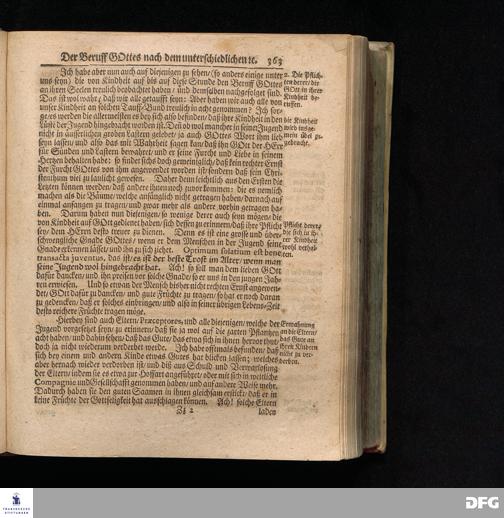 Der Beruff GOttes nach dem unterschiedlichen ꝛc. 363
Jch habe aber nun auch auf diejenigen zu sehen/ (so anders einige unter
uns seyn) die von Kindheit auf biß auf diese Stunde den Beruff GOttes
an ihren Seelen treulich beobachtet haben/ und demselben nachgefolget sind.
Das ist wol wahr/ daß wir alle getaufft seyn: Aber haben wir auch alle von
unser Kindheit an solchen Tauff-Bund treulich in acht genommen? Jch sor-
ge/es werden die allermeisten es bey sich also befinden/ daß ihre Kindheit in den
Lüsten der Jugend hingebracht worden ist. Den ob wol mancher in seiner Jugend
nicht in äusserlichen groben Lastern gelebet/ ja auch GOttes Wort ihm lieb
seyn lassen/ und also das mit Wahrheit sagen kan/ daß ihn GOtt der HErr
für Sünden und Lastern bewahret/ und er seine Furcht und Liebe in seinem
Hertzen behalten habe: so findet sichs doch gemeiniglich/ daß kein rechter Ernst
der Furcht GOttes von ihm angewendet worden ist/ sondern daß sein Chri-
stenthum viel zu laulicht gewesen. Daher denn leichtlich aus den Ersten die
Letzten können werden/ daß andere ihnen noch zuvor kommen: die es nemlich
machen als die Bäume/ welche anfänglich nicht getragen haben/ darnach auf
einmal anfangen zu tragen/ und zwar mehr als andere vorhin getragen ha-
ben. Darum haben nun diejenigen/ so wenige derer auch seyn mögen/ die
von Kindheit auf GOtt gedienet haben/ sich dessen zu erinnern/ daß ihre Pflicht
sey/ dem HErrn desto treuer zu dienen. Denn es ist eine grosse und über-
schwengliche Gnade GOttes/ wenn er dem Menschen in der Jugend seine
Gnade erkennen lässet/ und ihn zu sich ziehet. Optimum solatium est bene
transacta juventus, das ist/ es ist der beste Trost im Alter/ wenn man
seine Jugend wol hingebracht hat. Ach! so soll man dem lieben GOtt
dafür dancken/ und ihn preisen vor solche Gnade/ so er uns in den jungen Jah-
ren erwiesen. Und so etwan der Mensch bisher nicht rechten Ernst angewen-
det/ GOtt dafür zu dancken/ und gute Früchte zu tragen/ so hat er noch daran
zu gedencken/ daß er solches einbringen/ und also in seiner übrigen Lebens-Zeit
desto reichere Früchte tragen möge.
Hierbey sind auch Eltern/ Præceptores, und alle diejenigen/ welche der
Jugend vorgesetzet seyn/ zu erinnern/ daß sie ja wol auf die zarten Pflantzen
acht haben/ und dahin sehen/ daß das Gute/ das etwa sich in ihnen hervor thut/
doch ja nicht wiederum verderbet werde. Jch habe offtmals befunden/ daß
sich bey einem und andern Kinde etwas Gutes hat blicken lassen; welches
aber hernach wieder verdorben ist/ und diß aus Schuld und Verwarlosung
der Eltern/ indem sie es etwa zur Hoffart angeführet/ oder mit sich in weltliche
Compagnie und Gesellschafft genommen haben/ und auf andere Weise mehr.
Dadurch haben sie den guten Saamen in ihnen gleichsam erstickt/ daß er in
keine Früchte der Gottseligkeit hat ausschlagen können. Ach! solche Eltern
Zz 2 laden
2. Die Pflich-
ten derer/ die
GOtt in ihrer
Kindheit be-
ruffen.
die Kindheit
wird insge-
mein übel zu-
gebracht.
Pflicht derer/
die sich in ih-
rer Kindheit
wohl verhal-
ten.
Ermahnung
an die Eltern/
das Gute an
ihren Kindern
nicht zu ver-
derben.
FRANCKESCHE
STIFTUNGEN
DFG